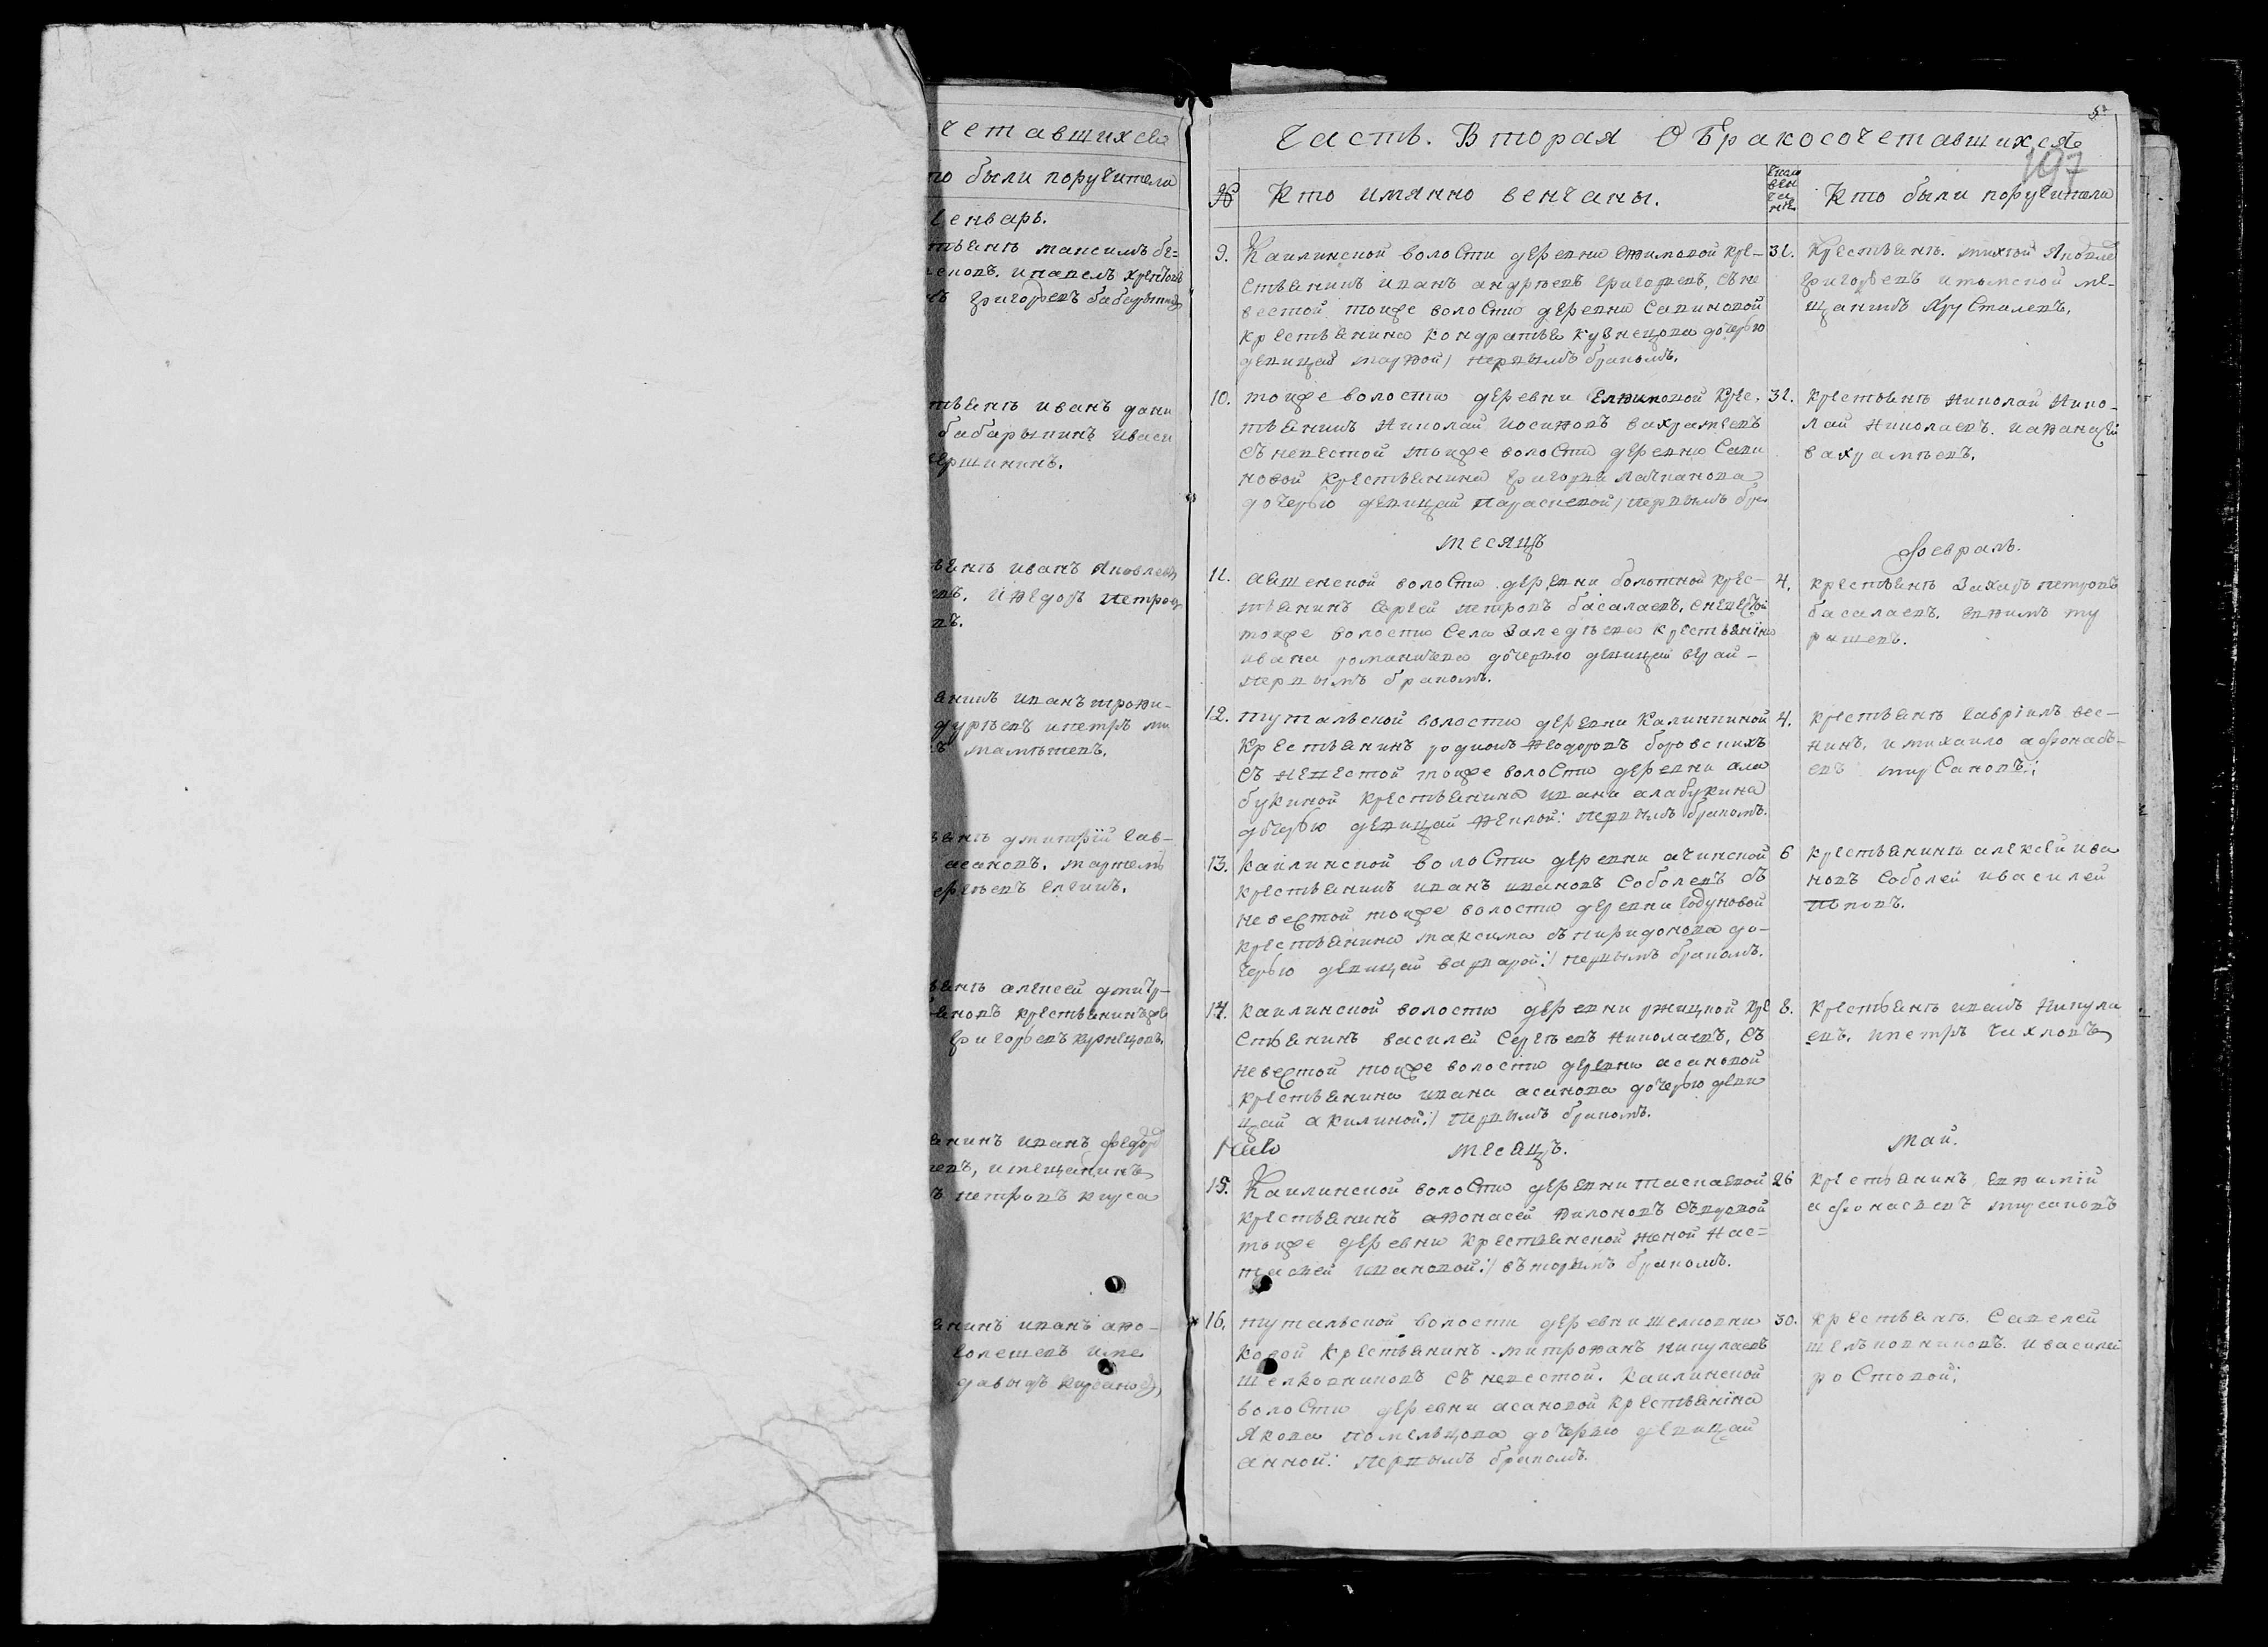 четавшихся
то были поручители
Генварь.
григорьевъ бабарыкинъ
тьянъ иванъ дани
бабарыкинъ иваси
ершининъ.
ьянъ иванъ яковлевъ
евъ. ифедоръ петровъ
въ.
янинъ иванъ трофи-
дурѣевъ ипетръ ми
мамѣтевъ.
янъ дмитрїй гав-
асановъ.
янъ алексей дмитр-
яновъ крестьянинъ
григорьевъ кузнецовъ.
янинъ иванъ федоро
евъ, имещанинъ
ъ петровъ кирса
янинъ иванъ афо-
голещевъ ипе
давыдъ кирсановъ
5
Часть. Вторая О Бракосочетавшихся
197
№ Кто имянно венчаны. Кто были поручители
9. Каилинской волости деревни Ефимовой кре-
стьянинъ иванъ андреевъ григорьевъ, съ не
вестой тоиже волости деревни Савиновой
крестьянина кондратья кузнецова дочерью
девицай марфой / первымъ бракомъ.
31. Крестьянъ. михгой Яковле
григорьевъ итомской ме-
щанинъ Хрусталевъ.
10. тоиже волости деревни Елтиковой крес-
тьянинъ Николай иосифовъ вахрамеевъ
съ невестой тоиже волости деревни Сави
новой крестьянина григорья Лачканова
дочерью девицай параскевой / первымъ бра
31. крестьянъ Николай Нико-
лай николаевъ. иафанасей
вахрамѣевъ.
месяцъ Февраль.
11. аяшенской волости деревни болотной крес-
тьянинъ Сергей петровъ басалаевъ, сневестой
тоиже волости села Заледѣева крестьянина
ивана романова дочерью девицай верай-
первымъ бракомъ.
4. крестьянъ Захаръ петровъ
басалаевъ. ефимъ ту
рышевъ.
12. тутальской волости деревни Калинкиной
Крестьянинъ родионъ Феодоровъ боровскихъ
съ невестой тоиже волости деревни ала
букиной крестьянина ивана алабукина
дочерью девицай Феклой: первымъ бракомъ.
4. крестьянъ гаврїилъ вес-
нинъ, имихаило афонасъ-
евъ мусановъ:,
13. Каилинской волости деревни ачинской
крестьянинъ иванъ ивановъ Соболевъ съ
невестой тоиже волости деревни годуновой
крестьянина максима съпиридонова до-
черью девицай варварой:/ первымъ бракомъ.
6 крестьянинъ алексей ива
новъ Соболей ивасилей
поповъ.
14. каилинской волости деревни ржицкой кре
стьянинъ василей Сергѣевъ николаевъ, съ
невестой тоиже волости деревни асановой
крестьянина ивана асанова дочерью деви
цай акилиной:/ первымъ бракомъ.
8. крестьянъ иванъ никула
евъ. ипетръ чихловъ
месяцъ. май.
15. Каилинской волости деревни таскаевой
крестьянинъ афонасей филоновъ съвдовой
тоиже деревни крестьянской женой Нас-
тасией ивановой:/ въторымъ бракомъ.
26 крестьянинъ ефимїй
афонасьевъ мусановъ
16. тутальской волости деревни шелковни
ковой крестьянинъ митрофанъ никулаевъ
шелковниковъ съ невестой. каилинской
волости деревни асановой крестьянина
Якова помельцова дочерью девицай
анной: первымъ бракомъ.
30. крестьянъ. Савелей
шелъковниковъ. ивасилей
ростовой;